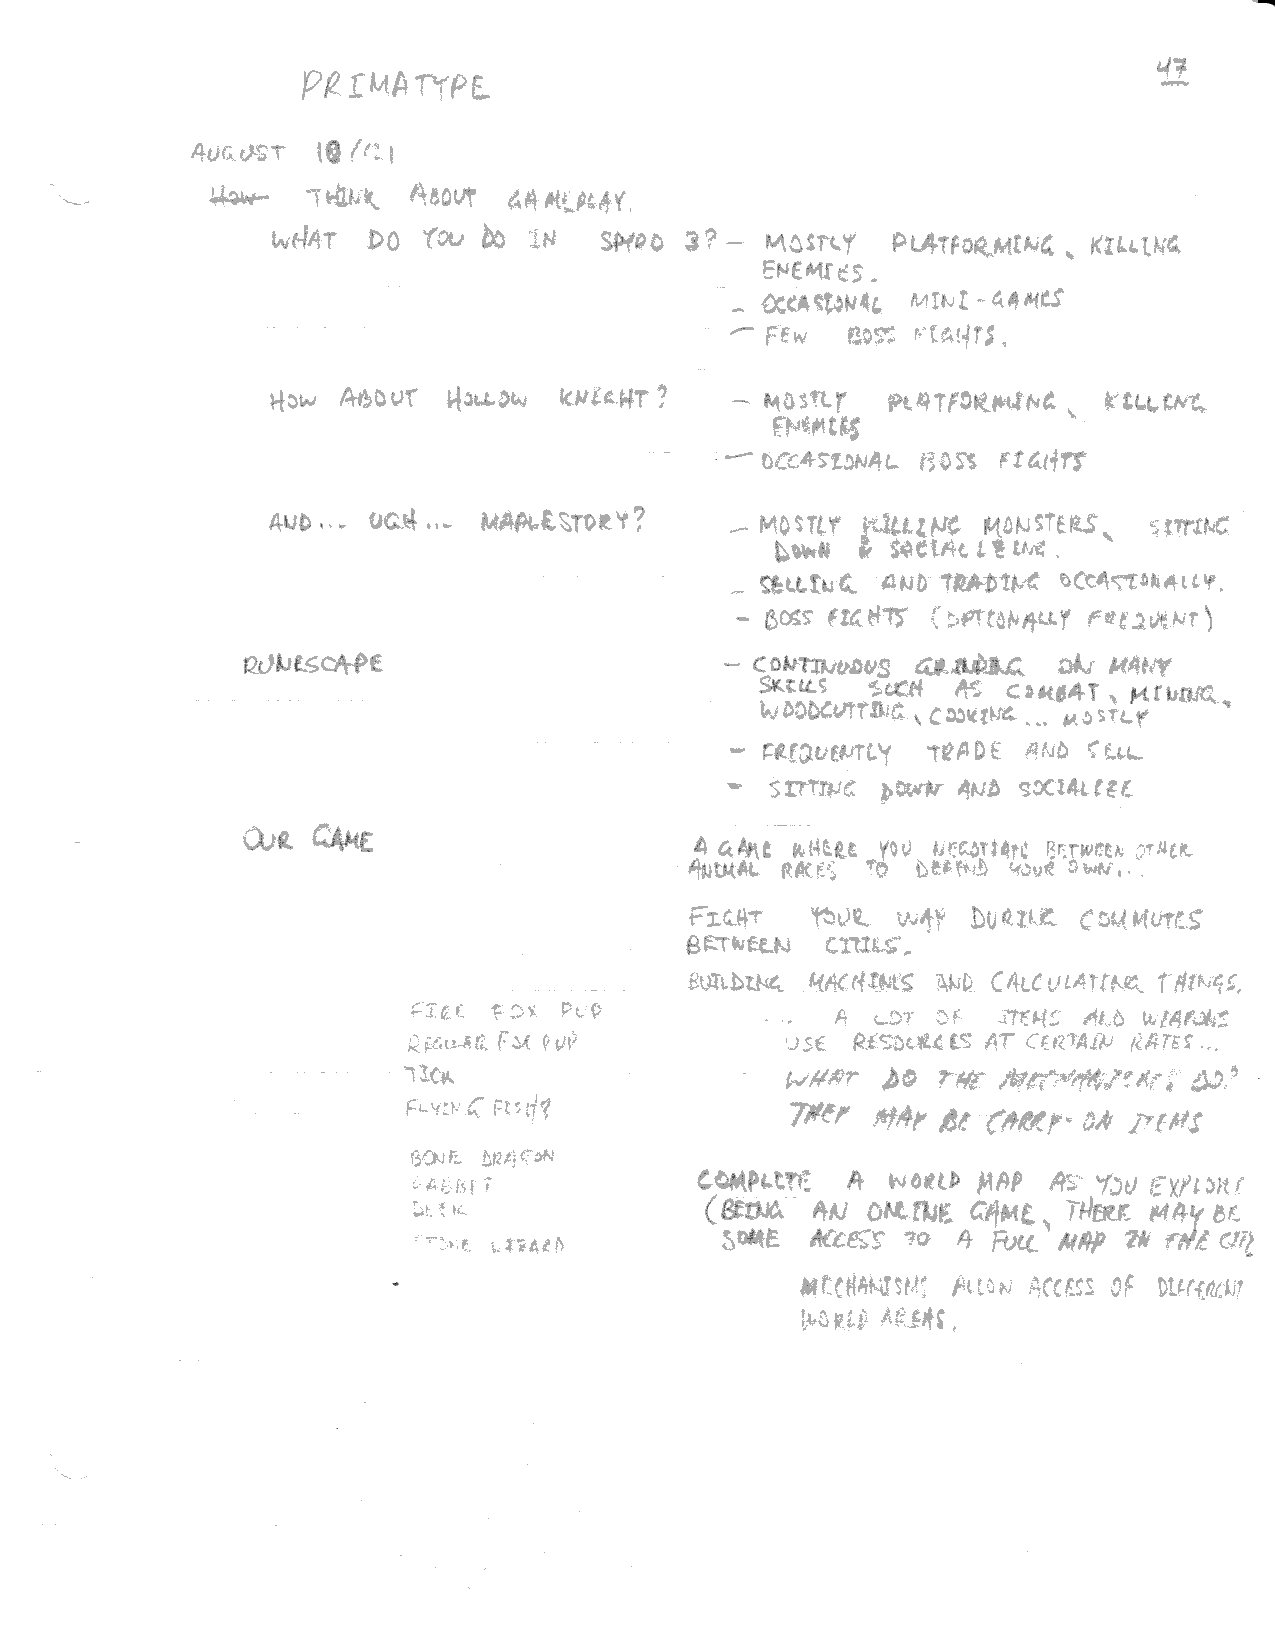 PRIMATYPE
47
AUGUST 10/121
How THINK ABOUT GAMEPLAY.
WHAT DO YOU DO IN SPYRO 3? - MOSTLY PLATFORMING, KILLING
ENEMIES.
- OCCASIONAL MINI-GAMES
- FEW BOSS FIGHTS.
HOW ABOUT HOLLOW KNIGHT? - MOSTLY PLATFORMING, KILLING
ENEMIES
- OCCASIONAL BOSS FIGHTS
AND... UGH... MAPLESTORY? - MOSTLY KILLING MONSTERS, SITTING
DOWN & SOCIALIZING.
- SELLING AND TRADING OCCASIONALLY.
- BOSS FIGHTS (OPTIONALLY FREQUENT)
RUNESCAPE - CONTINUOUS GRINDING ON MANY
SKILLS SUCH AS COMBAT, MINING,
WOODCUTTING, COOKING... MOSTLY
- FREQUENTLY TRADE AND SELL
- SITTING DOWN AND SOCIALIZE
OUR GAME
A GAME WHERE YOU NEGOTIATE BETWEEN OTHER
ANIMAL RACES TO DEFEND YOUR OWN...
FIGHT YOUR WAY DURING COMMUTES
BETWEEN CITIES.
BUILDING MACHINES AND CALCULATING THINGS.
FIRE FOX PUP
... A LOT OF ITEMS AND WEAPONS
REGULAR FOX PUP
USE RESOURCES AT CERTAIN RATES...
TICK
WHAT DO THE DO?
FLYING FISH?
THEY MAY BE CARRY-ON ITEMS
BONE DRAGON
RABBIT
DEER
STONE LIZARD
COMPLETE A WORLD MAP AS YOU EXPLORE
(BEING AN ONLINE GAME, THERE MAY BE
SOME ACCESS TO A FULL MAP IN THE
MECHANISMS ALLOW ACCESS OF DIFFERENT
WORLD AREAS.